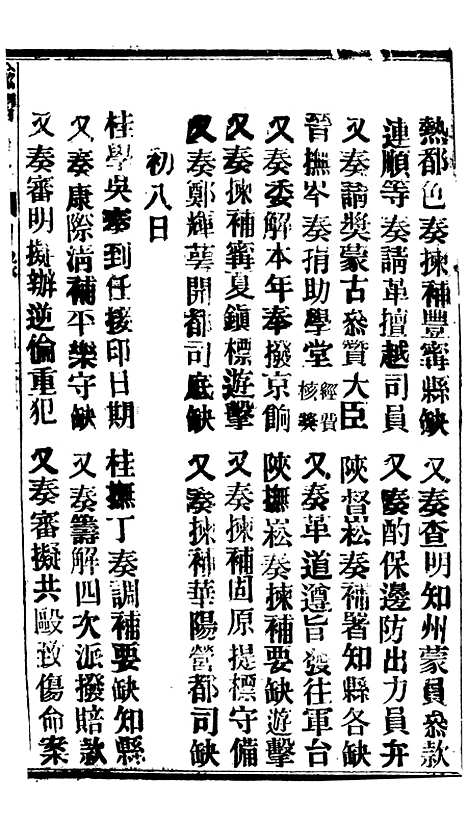 熱都色奏揀補豐寗縣缺　又奏查明知州蒙員參款
連順等奏請革擅越司員　又奏酌保邊防出力員弁
又奏請奬蒙古參贊大臣　陝督崧奏補署知縣各缺
晉撫岑奏捐助學堂經費核奬　又奏革道遵旨發往軍台
又奏委解本年奉撥京餉　陝撫崧奏揀補要缺遊擊
又奏揀補寗夏鎮標遊擊　又奏揀補固原提標守備
又奏鄭輝蕚開都司底缺　又奏揀補華陽營都司缺
初八日
桂學吳奏到任接印日期　桂撫丁奏調補要缺知縣
又奏康際清補平樂守缺　又奏籌解四次派撥賠款
又奏審明擬辦逆倫重犯　又奏審擬共毆致傷命案